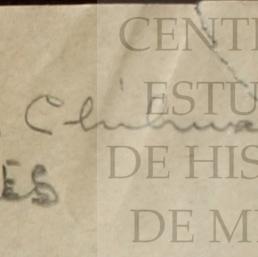 CENT
ESTU
Chihua
DE HIS
ES
DE M